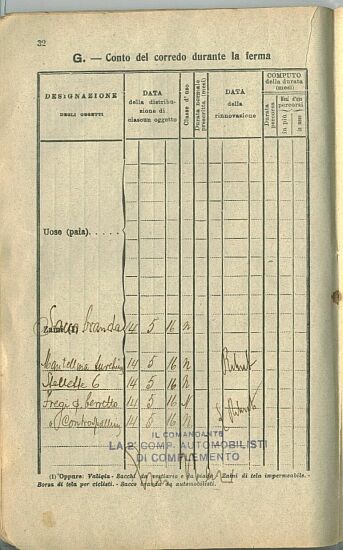 32
G. — Conto del corredo durante la ferma
DESIGNAZIONE
DEGLI OGGETTI
DATA
della distribu-
zione di
ciascun oggetto
Classe d'uso
Durata normale
prescritta (mesi)
DATA
della
rinnovazione
COMPUTO
della durata
(mesi)
Durata
percorsa
Mesi d'uso
percorsi
in più
in meno
Uose (paia). . . . .
Zaini (1)
Sacco branda 14 5 16 N
Mantellina turchina 14 5 16 N
Stellette 6 14 5 16 N
Fregi di berretto 14 5 16 N
14 5 16 N
IL COMANDANTE
LA 2ª COMP. AUTOMOBILISTI
DI COMPLEMENTO
(1) Oppure: Valigia - Sacchi da vestiario e da piedi - Zaini di tela impermeabile.
Borsa di tela per ciclisti. - Sacco branda da automobilisti.